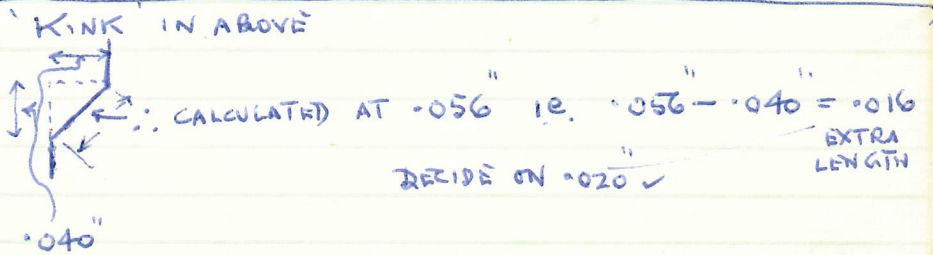 'KINK' IN ABOVE
∴ CALCULATED AT .056" ie. .056" - .040" = .016
EXTRA
LENGTH
DECIDE ON .020" ✓
.040"